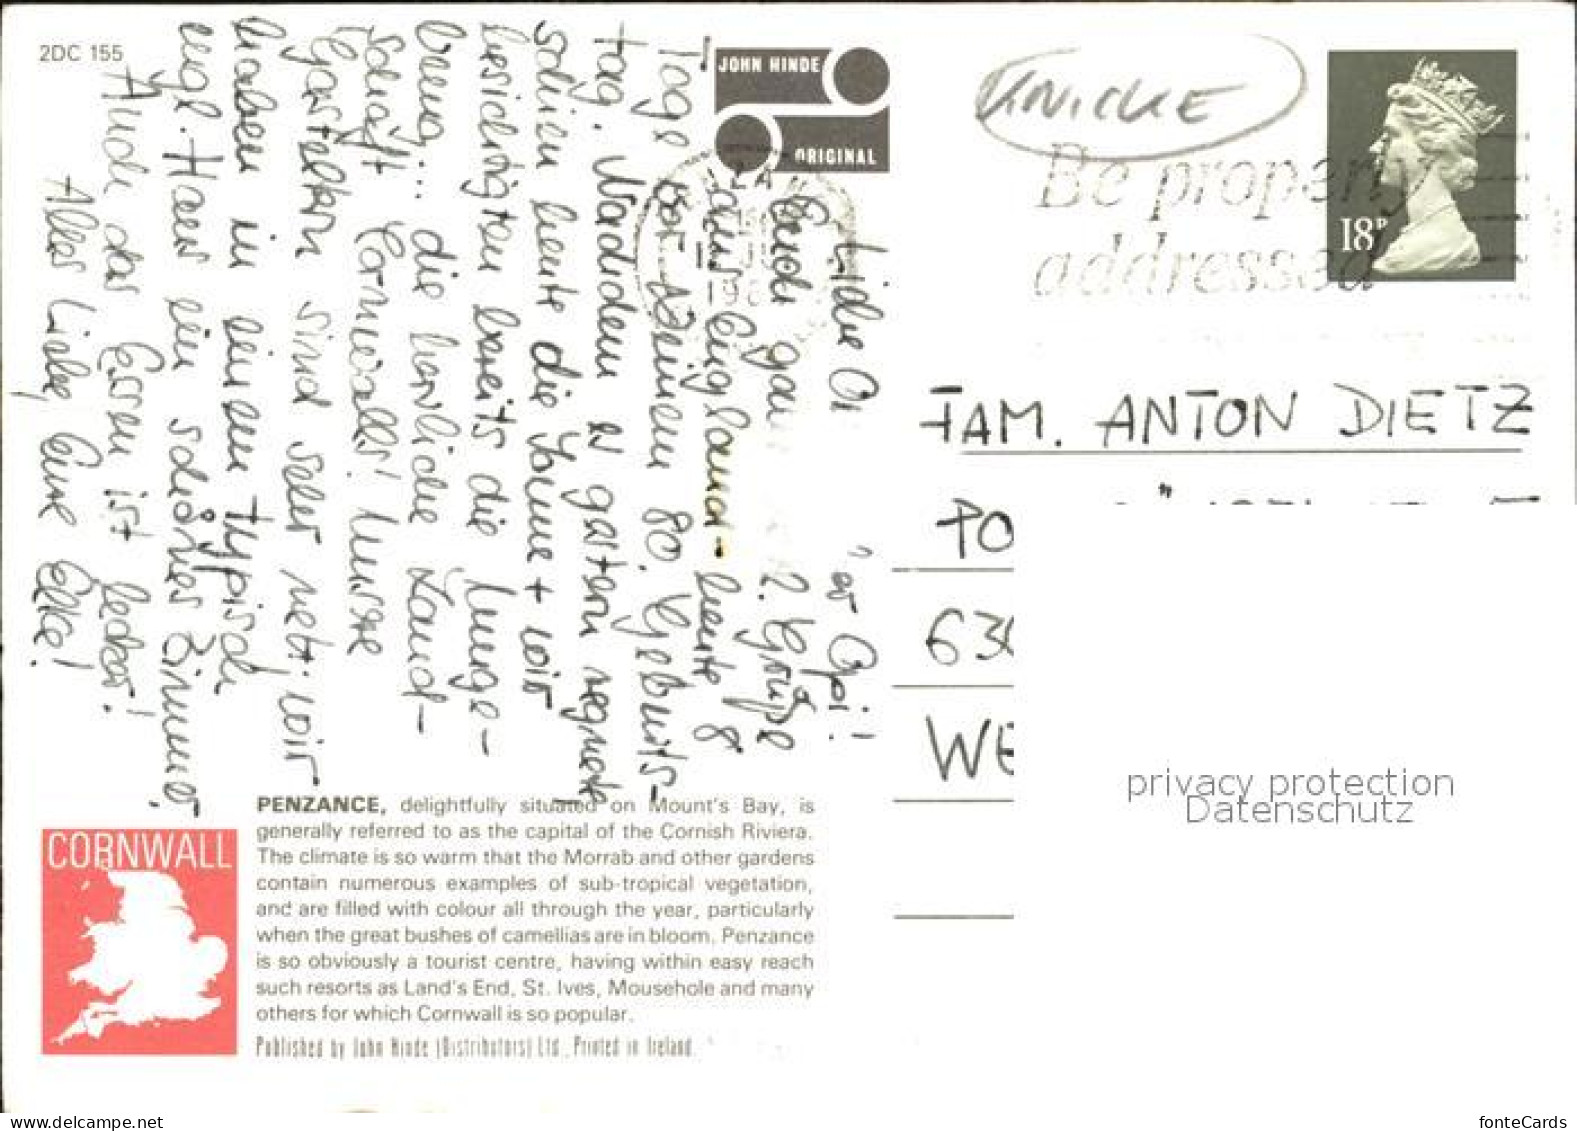 2DC 155
JOHN HINDE
ORIGINAL
KNICKE
Be properly
addressed
18P
Liebe O
ar Opi!
Euch gan
2. Grüße
aus England - heute 8
Tage vor Deinem 80. Geburts-
tag. Nachdem es gestern regnete
schien heute die Sonne + wir
besichtigten bereits die Umge-
bung... die herrliche Land-
schaft Cornwalls! Unsere
Gasteltern sind sehr nett; wir
haben in einem typisch
engl. Haus ein schönes Zimmer.
Auch das Essen ist lecker!
Alles Liebe Eure Elke!
FAM. ANTON DIETZ
PO
63
WE
privacy protection
Datenschutz
CORNWALL
PENZANCE, delightfully situated on Mount's Bay, is
generally referred to as the capital of the Cornish Riviera.
The climate is so warm that the Morrab and other gardens
contain numerous examples of sub-tropical vegetation,
and are filled with colour all through the year, particularly
when the great bushes of camellias are in bloom. Penzance
is so obviously a tourist centre, having within easy reach
such resorts as Land's End, St. Ives, Mousehole and many
others for which Cornwall is so popular.
Published by John Hinde (Distributors) Ltd., Printed in Ireland.
www.delcampe.net
fonteCards